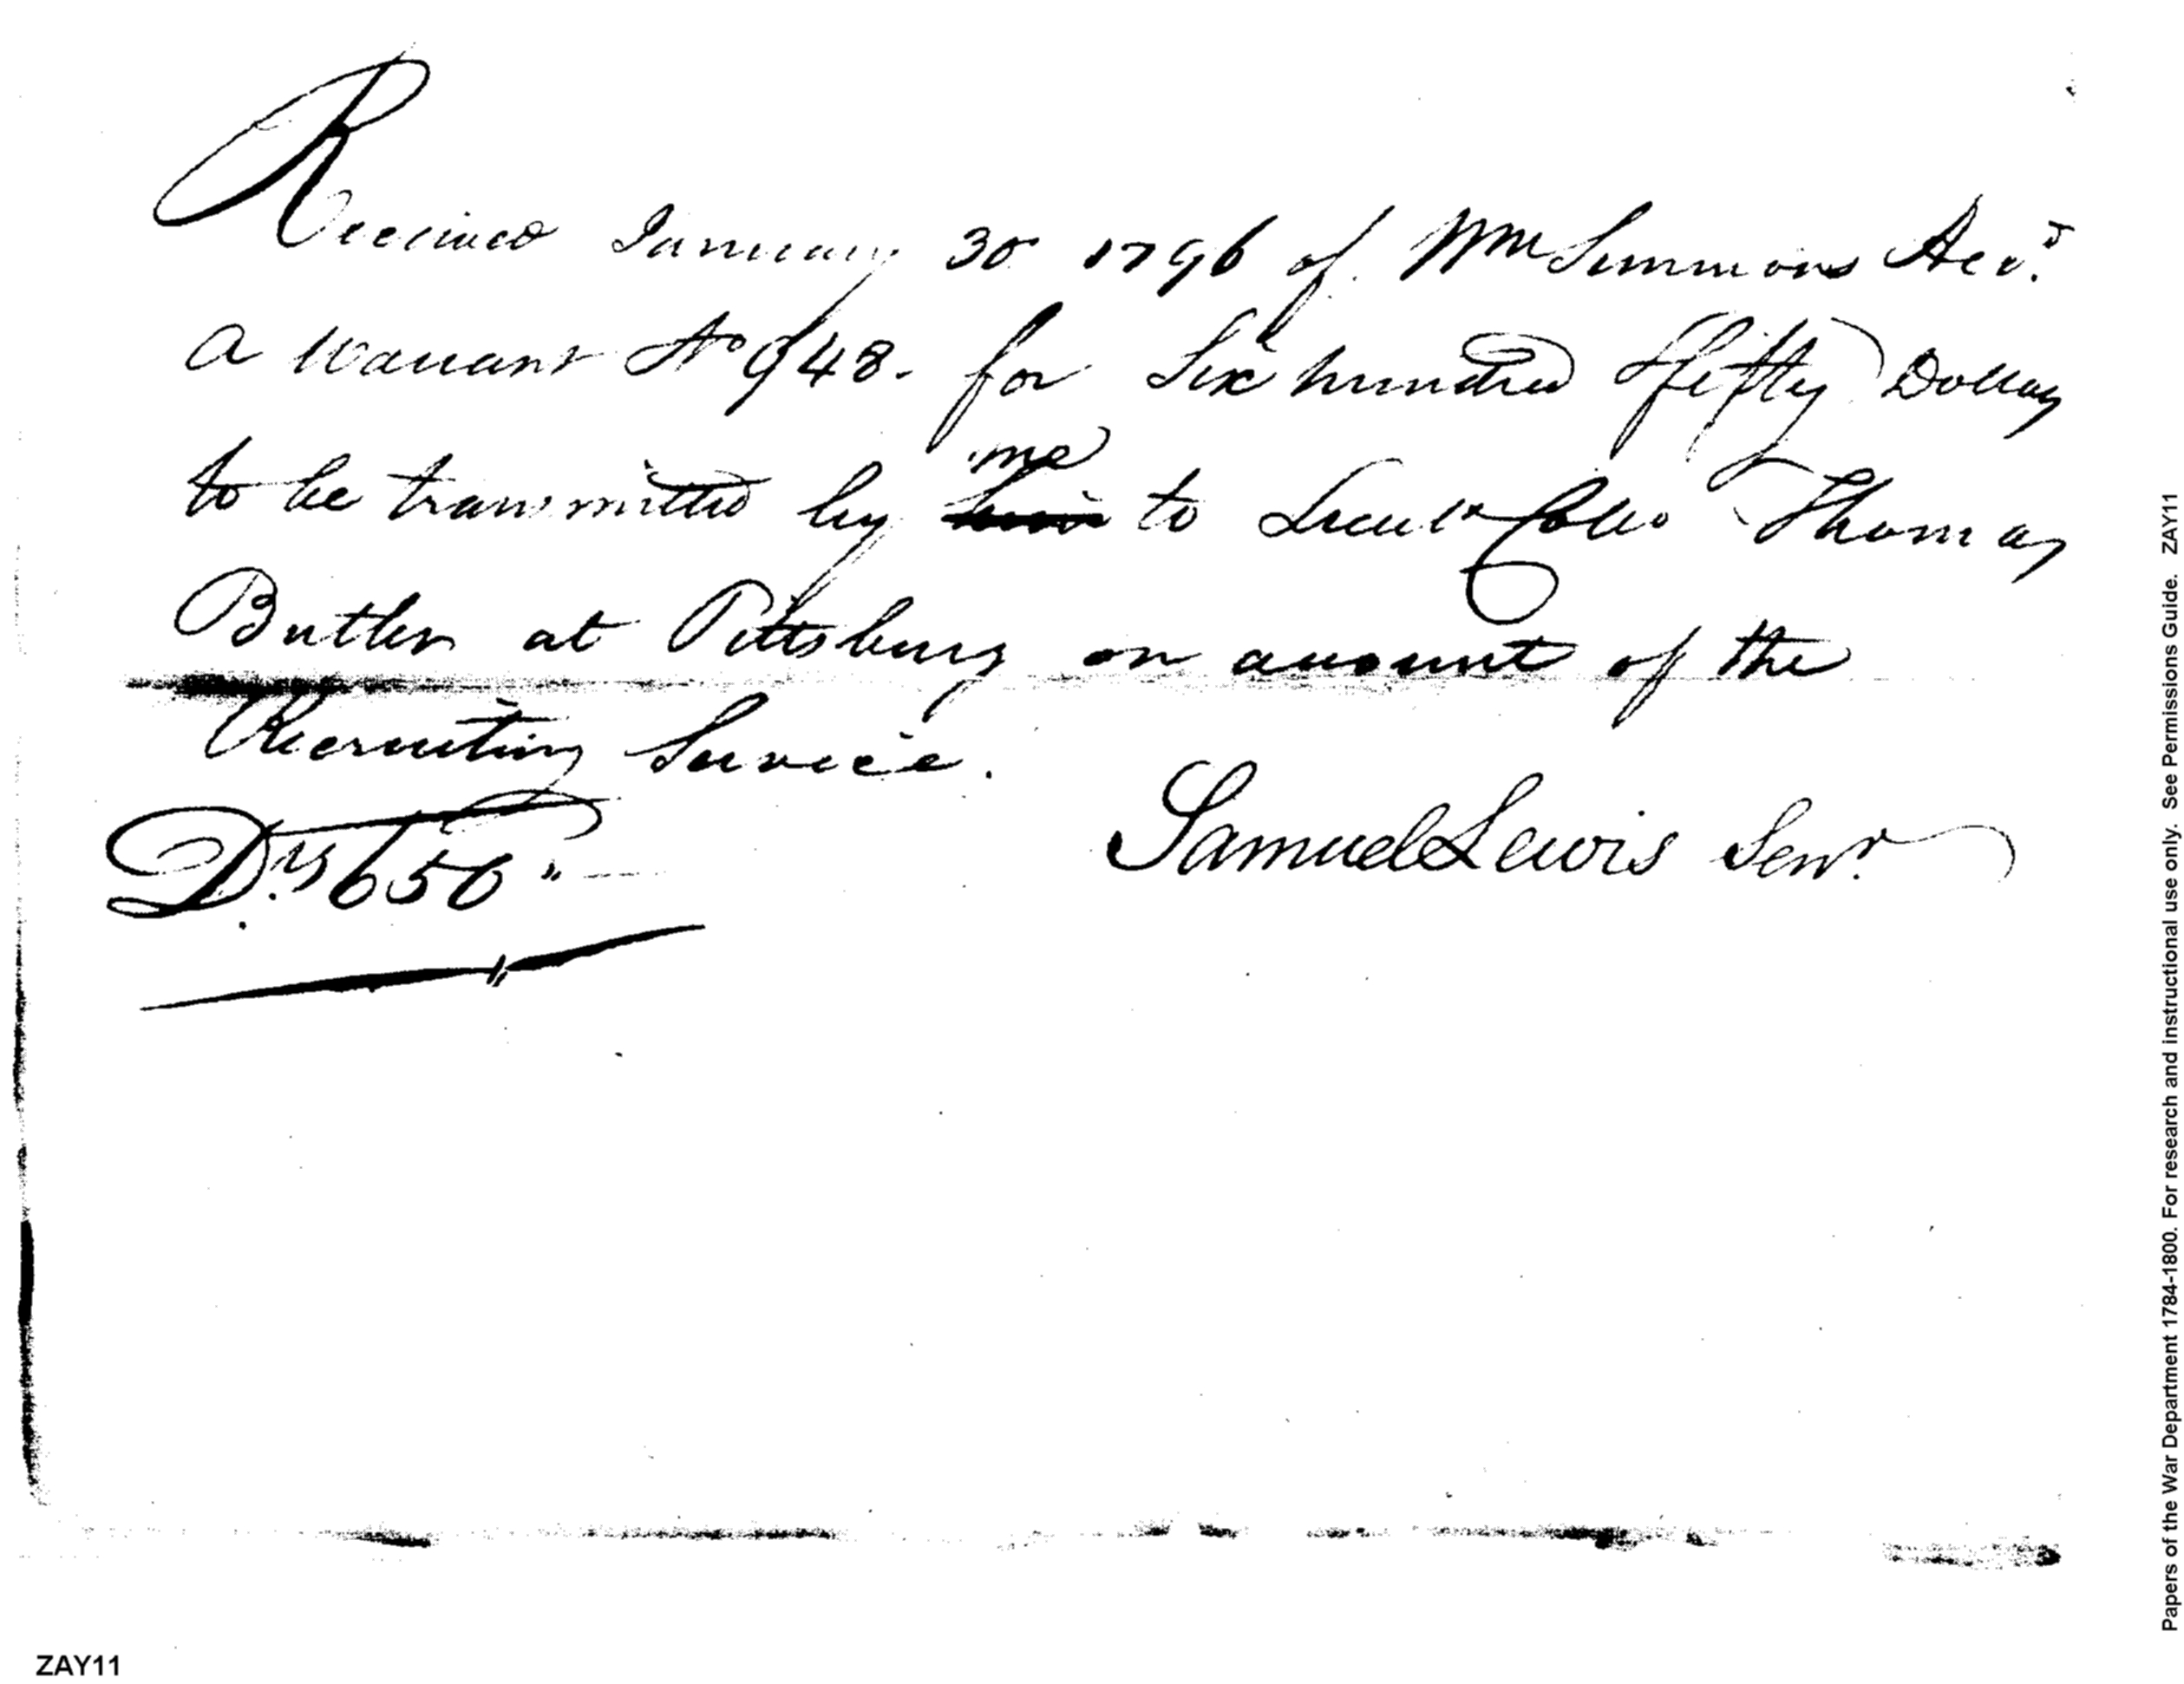 Received January 30 1796 of Wm Simmons Acct.
a warrant No 948. for Six hundred fifty Dollars
to be transmitted by me to Lieut Colo Thomas
Butler at Pittsburg on account of the
Recruiting Service.
Samuel Lewis Senr.
D.rs 650 "
Papers of the War Department 1784-1800. For research and instructional use only. See Permissions Guide. ZAY11
ZAY11